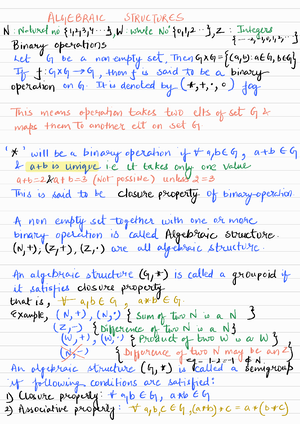 ALGEBRAIC STRUCTURES
N: Natural no {1,2,3,4....}, W: whole No {0,1,2...}, Z: Integers
Binary operations
Let G be a non empty set, Then G×G = {(a,b): a∈G, b∈G}
If f: G×G → G, then f is said to be a binary
operation on G. It is denoted by (*, +, ·, o) fog
This means operation takes two elts of set G &
maps them to another elt on set G
'*' will be a binary operation if ∀ a,b ∈ G, a*b ∈ G
& a*b is unique i.e it takes only one value
a*b=2 a*b=3 (Not possible) unless 2=3
This is said to be closure property of binary-operation
A non empty set together with one or more
binary operation is called Algebraic structure.
(N,+), (Z,+), (Z,·) are all algebraic structure.
An algebraic structure (G,*) is called a groupoid if
it satisfies closure property
that is, ∀ a,b ∈ G, a*b ∈ G
Example, (N,+), (N,·) {Sum of two N is a N}
(Z,-) {Difference of two N is a N}
(W,+), (W,·) {Product of two W is a W}
(N,-) {Difference of two N may be an Z}
An algebraic structure (G,*) is called a semigroup
if following conditions are satisfied:
1) Closure property: ∀ a,b ∈ G, a*b ∈ G
2) Associative property: ∀ a,b,c ∈ G, (a*b)*c = a*(b*c)